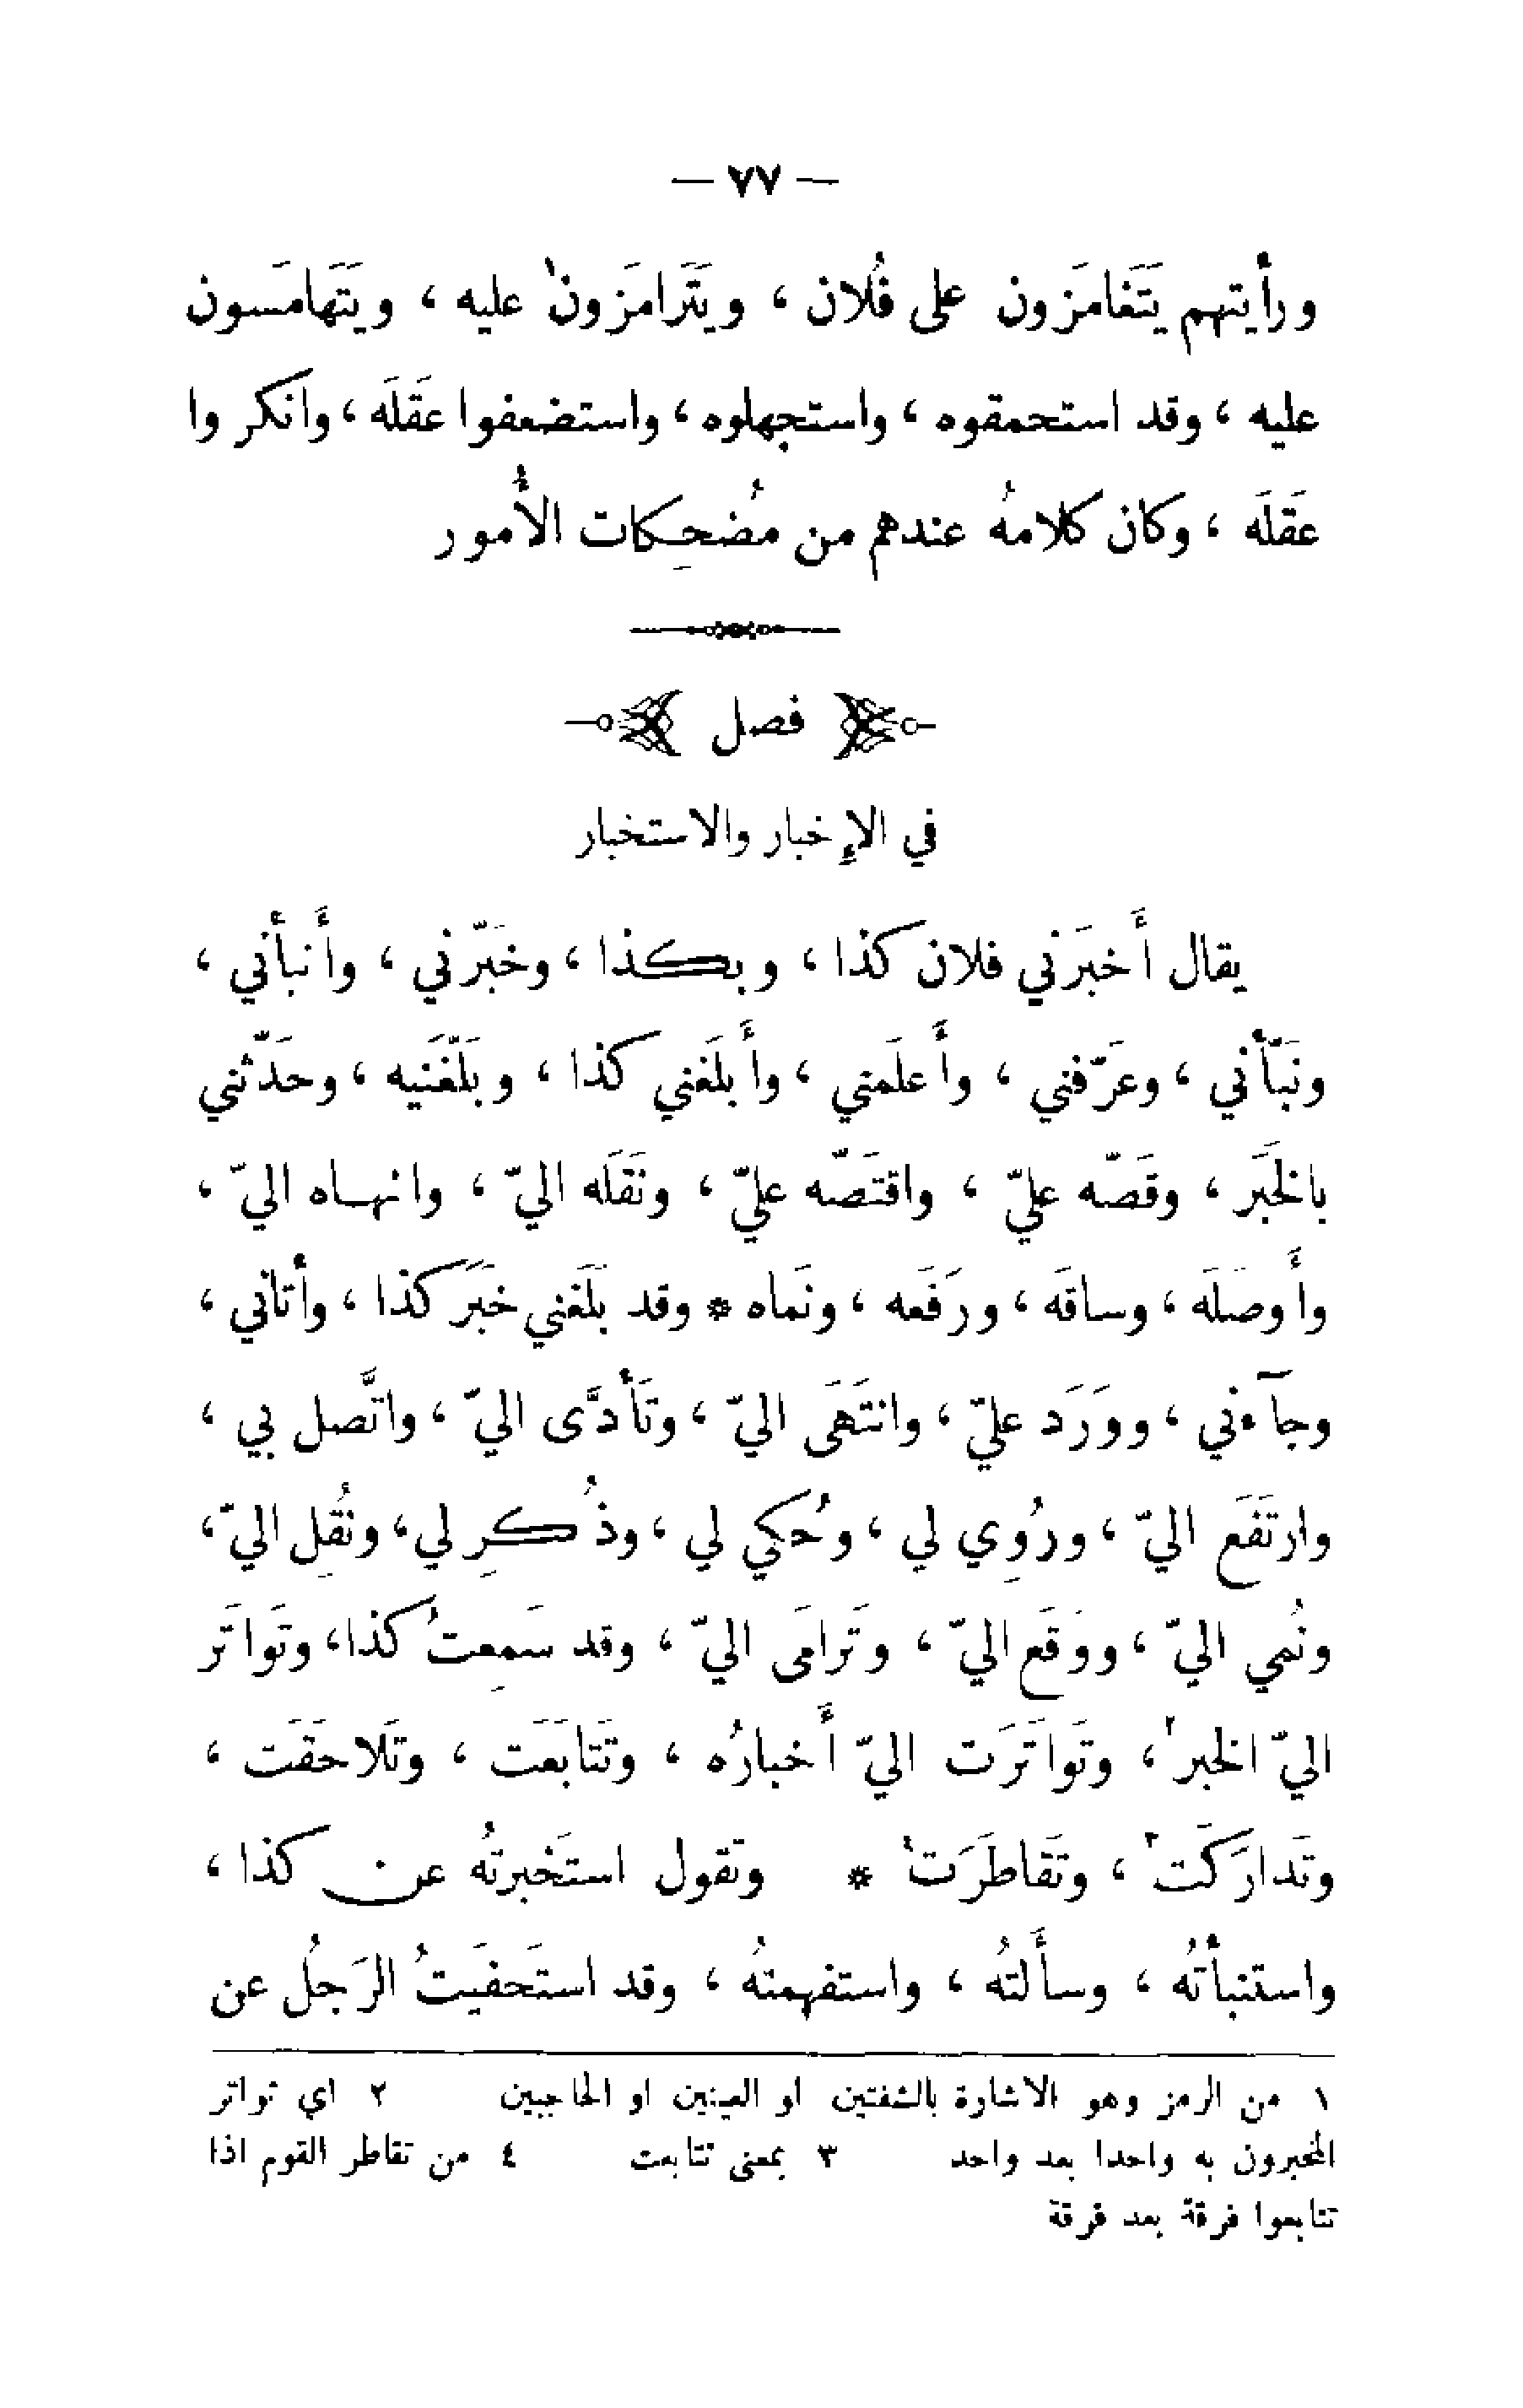 — ٧٧ —
ورأيتهم يَتَغامَزون على فُلان ، ويَتَرامَزون١ عليه ، ويَتَهامَسون
عليه ، وقد استحمقوه ، واستجهلوه ، واستضعفوا عَقلَه ، وانكروا
عَقلَه ، وكان كلامهُ عندهم من مُضحِكات الأُمور
فصل
في الإخبار والاستخبار
يقال أَخبَرَني فلان كذا ، وبكذا ، وخَبّرني ، وأَنبأني ،
ونَبّأني ، وعرَّفني ، وأَعلَمني ، وأَبلَغني كذا ، وبَلّغَنيه ، وحَدّثني
بالخَبَر ، وقَصّه عليّ ، واقتَصّه عليّ ، ونَقَلَه اليّ ، وانهاه اليّ ،
وأَوصَلَه ، وساقَه ، ورَفَعه ، ونَماه * وقد بَلَغني خَبَر كذا ، وأتاني ،
وجآءني ، ووَرَد عليّ ، وانتَهَى اليّ ، وتَأدَّى اليّ ، واتَّصل بي ،
وارتَفَع اليّ ، ورُوِي لي ، وحُكي لي ، وذُكِر لي ، ونُقِل اليّ ،
ونُمي اليّ ، ووَقَع اليّ ، وتَرامَى اليّ ، وقد سَمِعتُ كذا ، وتَواتَر
اليّ الخبر٢ ، وتَواتَرَت اليّ أَخبارُه ، وتَتابَعَت ، وتَلاحَقَت ،
وتَدارَكَت٣ ، وتَقاطَرَت٤ * وتقول استَخبرتُه عن كذا ،
واستنبأتُه ، وسأَلتُه ، واستفهمتُه ، وقد استَحفَيتُ الرَجُل عن
١ من الرمز وهو الاشارة بالشفتين او العينين او الحاجبين ٢ اي تواتر
المخبرون به واحدا بعد واحد ٣ بمعنى تتابعت ٤ من تقاطر القوم اذا
تتابعوا فرقة بعد فرقة